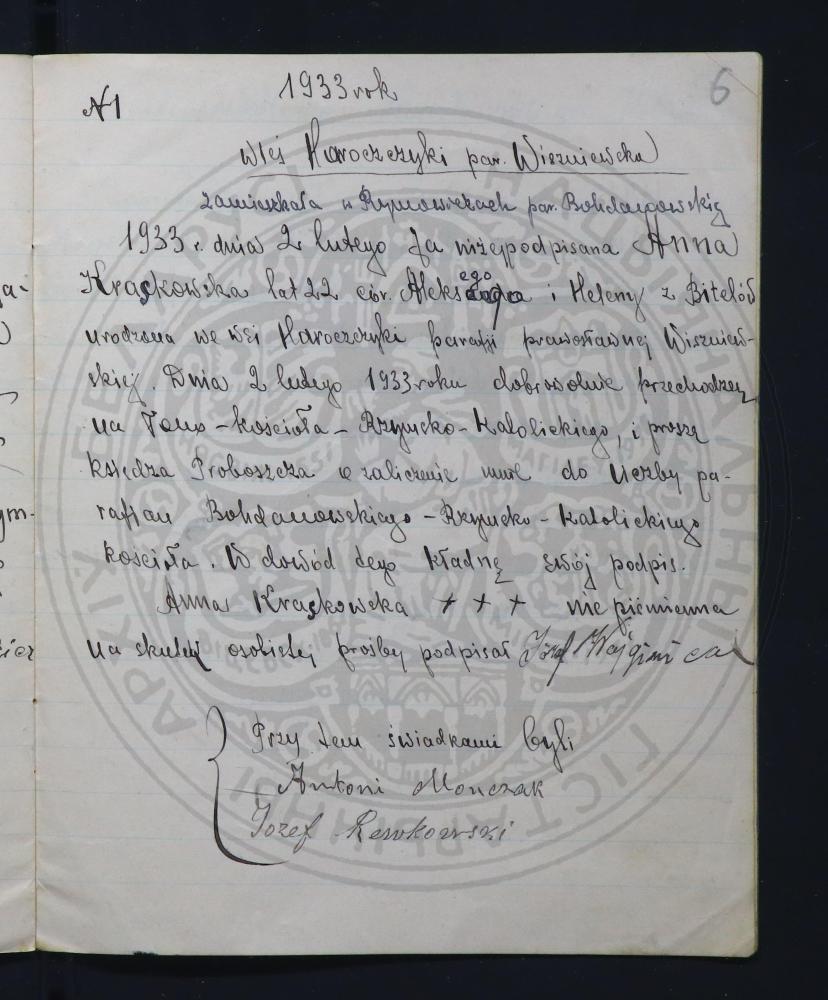 1933 rok
6
N1
Wieś Haroczczyki par. Wiszniewska
zamieszkała w Rymowiczach par. Bohdanowskiej
1933 r. dnia 2 lutego Ja niżejpodpisana Anna
Kraskowska lat 22 cór. Aleks ego i Heleny z Bitelów
urodzona we wsi Haroczczyki parafji prawosławnej Wiszniew-
skiej. Dnia 2 lutego 1933 roku dobrowolnie przechodzę
na łono - kościoła - Rzymsko - Katolickiego, i proszę
księdza Proboszcza o zaliczenie mnie do liczby pa-
rafjan Bohdanowskiego - Rzymsko - Katolickiego
kościoła. W dowód tego kładnę swój podpis.
Anna Kraskowska + + + nie piśmienna
na skutek osobistej prośby podpisał Józef
Przy tem świadkami byli
Antoni Monczak
Józef Rewkowski